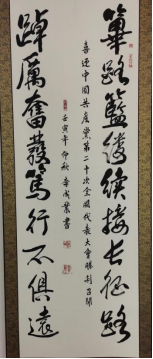 篳路籃縷继接长征路
喜迎中國共產黨第二十次全國代表大會勝利召開
壬寅年仲秋
踔厲奮發篤行不俱遠